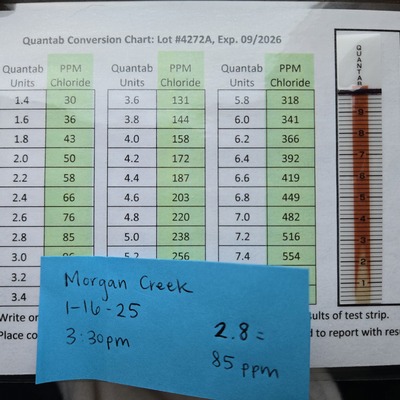 Quantab Conversion Chart: Lot #4272A, Exp. 09/2026
Quantab Units PPM Chloride Quantab Units PPM Chloride Quantab Units PPM Chloride
1.4 30 3.6 131 5.8 318
1.6 36 3.8 144 6.0 341
1.8 43 4.0 158 6.2 366
2.0 50 4.2 172 6.4 392
2.2 58 4.4 187 6.6 419
2.4 66 4.6 203 6.8 449
2.6 76 4.8 220 7.0 482
2.8 85 5.0 238 7.2 516
3.0 5.2 256 7.4 554
3.2
3.4
QUANTAB
9
8
7
6
5
4
3
2
1
Write on
of test strip.
Place
to report with
Morgan Creek
1-16-25
3:30pm
2.8 =
85 ppm